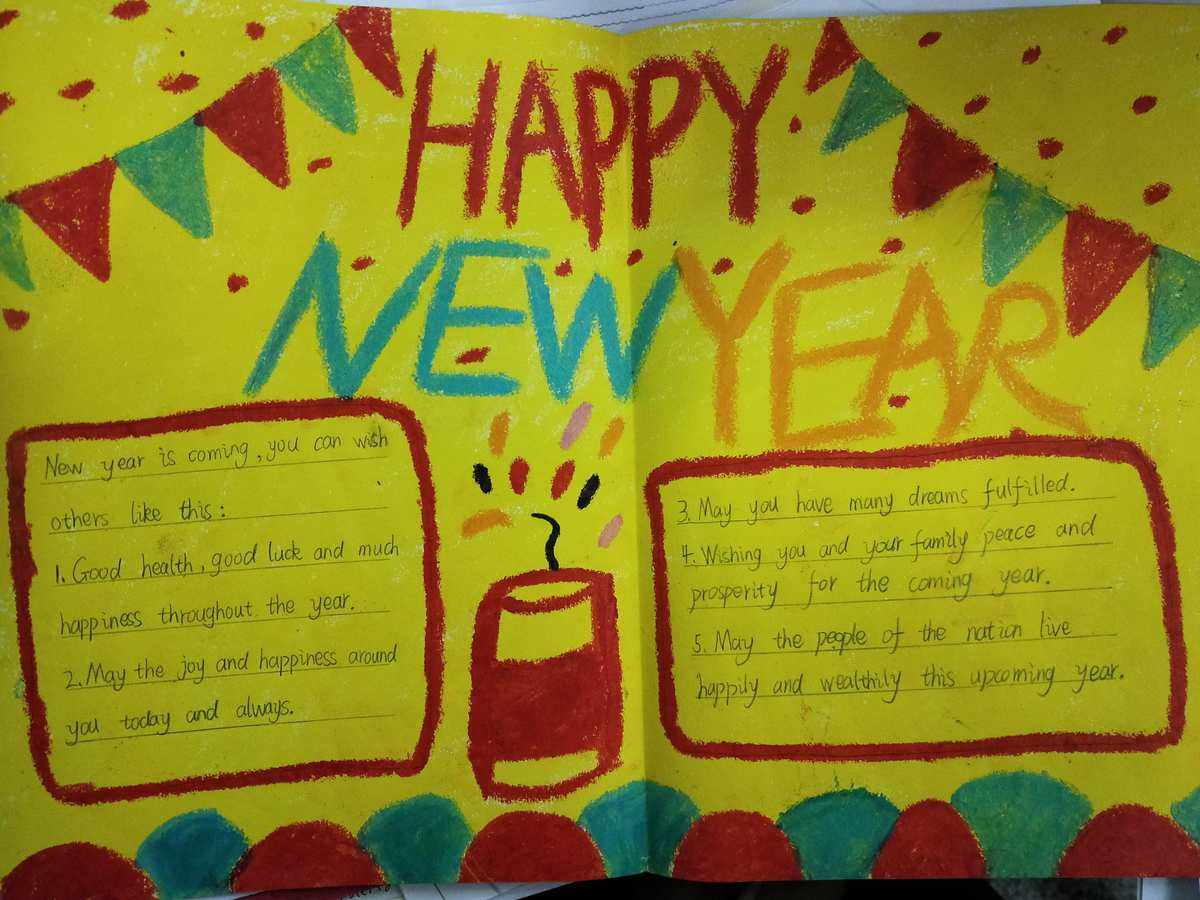 HAPPY
NEW YEAR
New year is coming, you can wish
others like this:
1. Good health, good luck and much
happiness throughout the year.
2. May the joy and happiness around
you today and always.
3. May you have many dreams fulfilled.
4. Wishing you and your family peace and
prosperity for the coming year.
5. May the people of the nation live
happily and wealthily this upcoming year.